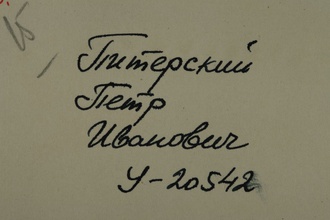 15
Питерский
Петр
Иванович
У-20542